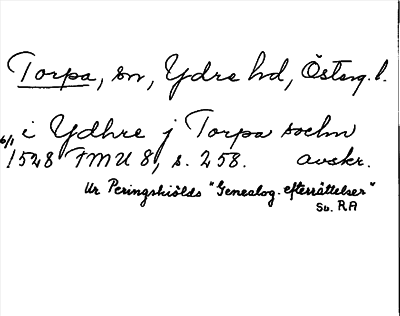 Torpa, sn, Ydre hd, Österg. l.
i Ydhre j Torpa sochn
6/1 1528 FMU 8, s. 258. avskr.
Ur Peringskiölds "Genealog. efterrättelser"
Sv. RA